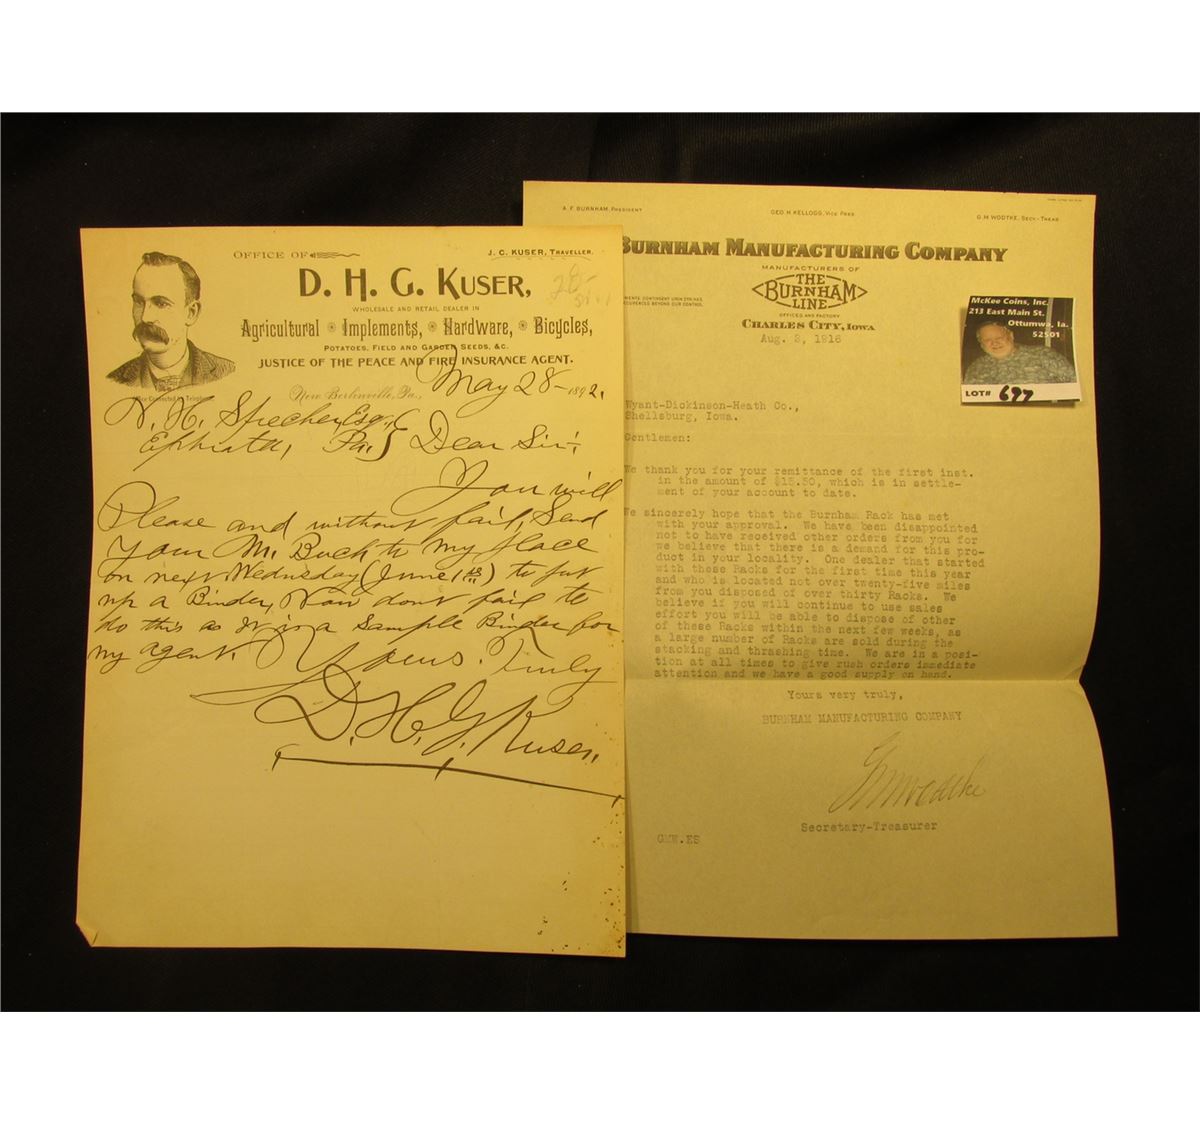 OFFICE OF
J. C. KUSER, TRAVELLER.
D. H. G. KUSER,
WHOLESALE AND RETAIL DEALER IN
Agricultural Implements, Hardware, Bicycles,
POTATOES, FIELD AND GARDEN SEEDS, &C.
JUSTICE OF THE PEACE AND FIRE INSURANCE AGENT.
New Berlinville, Pa., May 28- 1892.
N. H. Sprecher, Esq.
Ephrata, Pa. Dear Sir:
You will
Please and without fail, Send
your Mr. Buch to my place
on next Wednesday (June 1st) to put
up a Binder, Now dont fail to
do this as it is a Sample Binder for
my agent. Yours Truly
D. H. G. Kuser.
A. F. BURNHAM, PRESIDENT
GEO. H. KELLOGG, VICE PRES
G. M. WODTKE, SECY-TREAS
BURNHAM MANUFACTURING COMPANY
MANUFACTURERS OF
THE
BURNHAM
LINE
OFFICES AND FACTORY
CHARLES CITY, IOWA
Aug. 3, 1916
Wyant-Dickinson-Heath Co.,
Shellsburg, Iowa.
Gentlemen:
We thank you for your remittance of the first inst.
in the amount of $15.50, which is in settle-
ment of your account to date.
We sincerely hope that the Burnham Rack has met
with your approval. We have been disappointed
not to have received other orders from you for
we believe that there is a demand for this pro-
duct in your locality. One dealer that started
with these Racks for the first time this year
and who is located not over twenty-five miles
from you disposed of over thirty Racks. We
believe if you will continue to use sales
effort you will be able to dispose of other
of these Racks within the next few weeks, as
a large number of Racks are sold during the
stacking and thrashing time. We are in a posi-
tion at all times to give rush orders immediate
attention and we have a good supply on hand.
Yours very truly,
BURNHAM MANUFACTURING COMPANY
GMWodtke
Secretary-Treasurer
GMW.ES
McKee Coins, Inc.
213 East Main St.
Ottumwa, Ia.
52501
LOT# 697